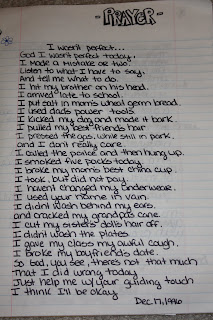 - PRAYER -
I wasn't perfect...
God I wasn't perfect today.
I made a mistake or two.
Listen to what I have to say,
And tell me what to do.
I hit my brother on his head.
I arrived late to school.
I put salt in moms wheat germ bread.
I used dads power tools
I kicked my dog and made it bark
I pulled my best friends hair
I pressed the gas, while still in park.
and I don't really care.
I called the police and then hung up.
I smoked five packs today.
I broke my moms best china cup.
I took, but did not pay.
I haven't changed my underwear.
I used your name in vain.
I didn't wash behind my ears.
and cracked my grandpas cane.
I cut my sisters dolls hair off.
I didn't wash the plates
I gave my class my awful cough,
I broke my boyfriends date.
So God, you see, there's not that much
That I did wrong today
Just help me w/your guiding touch
I think I'll be okay
Dec. 17, 1996